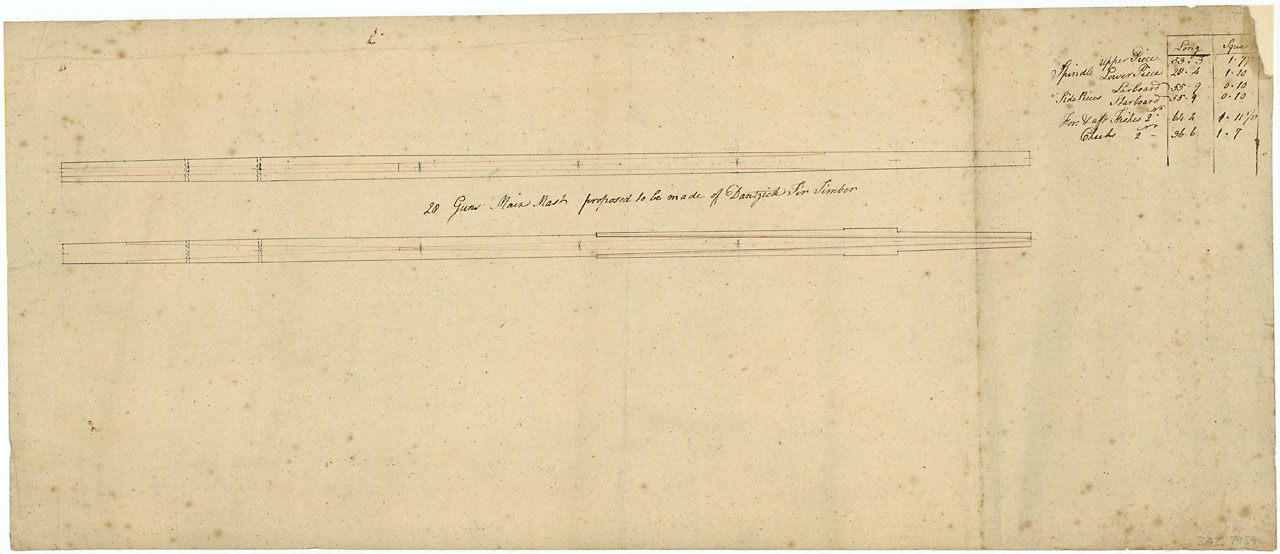 Long Squa
Spindle Upper Piece 53.3 1.7½
Lower Piece 28.4 1.10
Side Pieces Larboard 55.9 0.10
Starboard 55.9 0.10
Fore & aft Fishes Nº 2 64.4 1.11½
Cheeks Nº 2 - 36.6 1.7
28 Guns Main Mast proposed to be made of Dantzick Fir Timber
ZAZ 7954